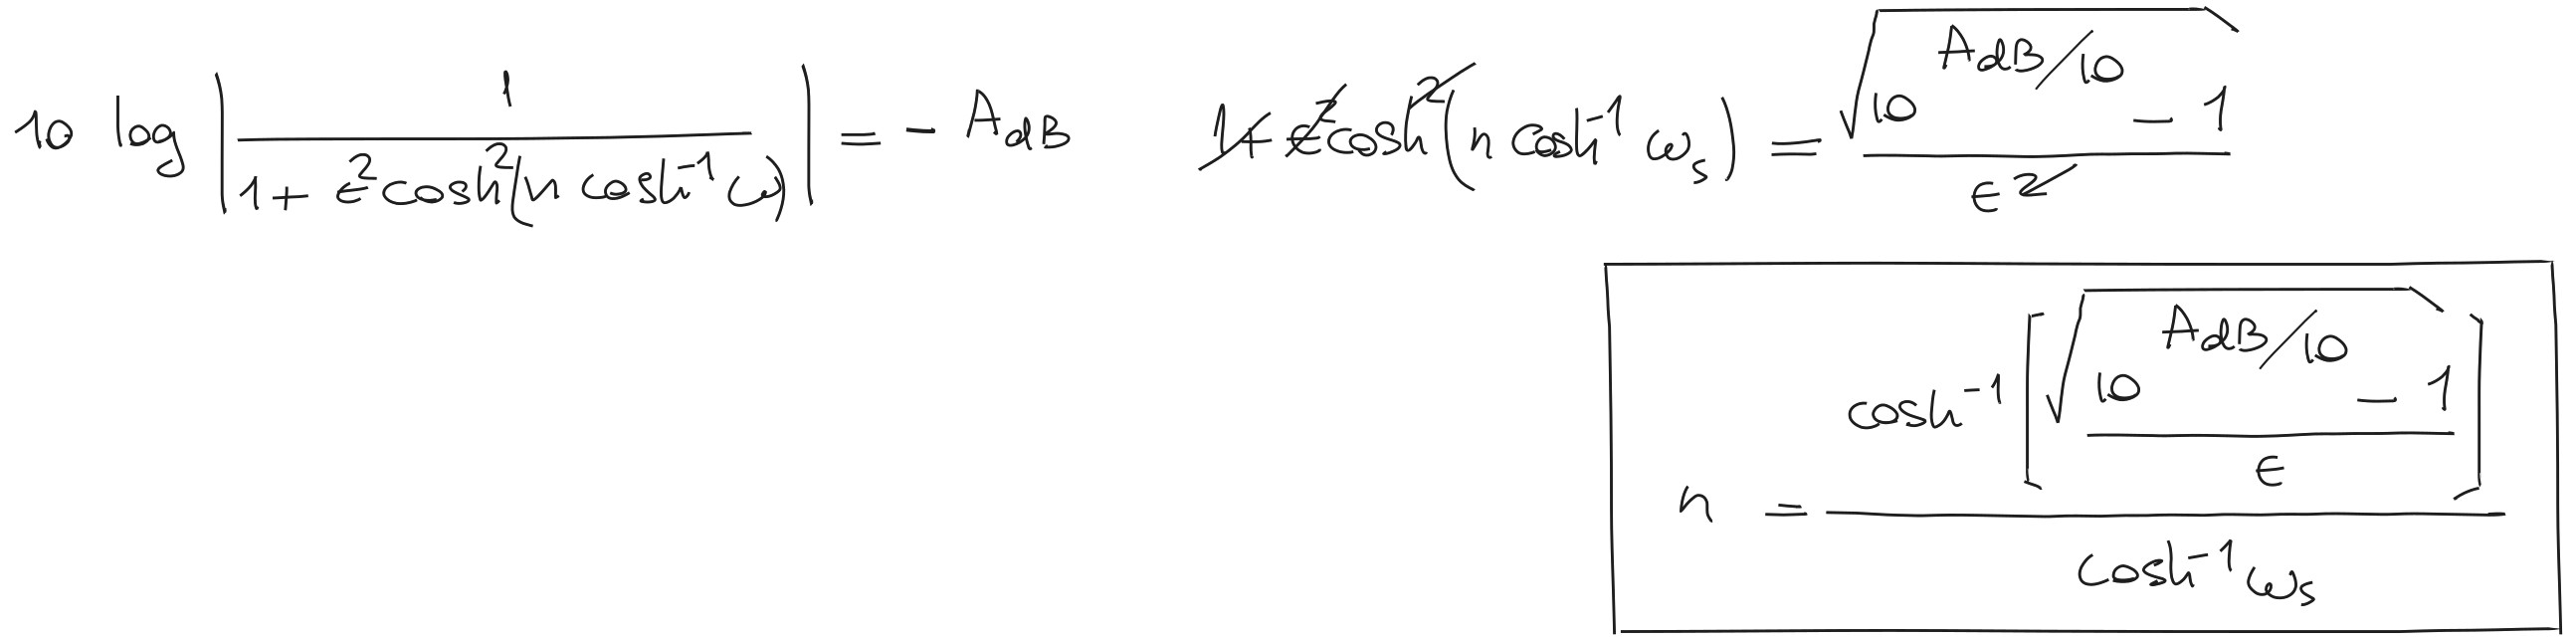 10 log |1 / (1 + ϵ² cosh²(n cosh⁻¹ ω))| = − A_dB
1 + ϵ² cosh²(n cosh⁻¹ ω_s) = √(10^(A_dB/10) − 1) / ϵ²
n = cosh⁻¹[√(10^(A_dB/10) − 1) / ϵ] / cosh⁻¹ ω_s